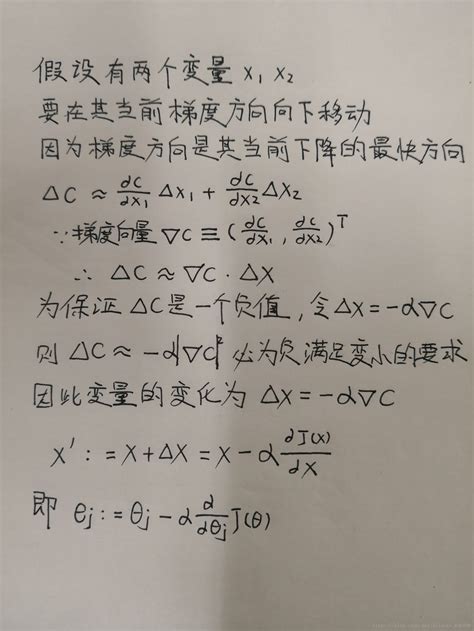 假设有两个变量 x₁ x₂
要在其当前梯度方向向下移动
因为梯度方向是其当前下降的最快方向
△C ≈ dC/dx₁ △x₁ + dC/dx₂ △x₂
∵梯度向量 ▽C ≡ (dC/dx₁, dC/dx₂)ᵀ
∴ △C ≈ ▽C · △X
为保证 △C是一个负值，令△X = -α▽C
则 △C ≈ -α|▽C|² 必为负满足变小的要求
因此变量的变化为 △X = -α▽C
X' : = X + △X = X - α dJ(x)/dX
即 θj := θj - α d/dθj J(θ)